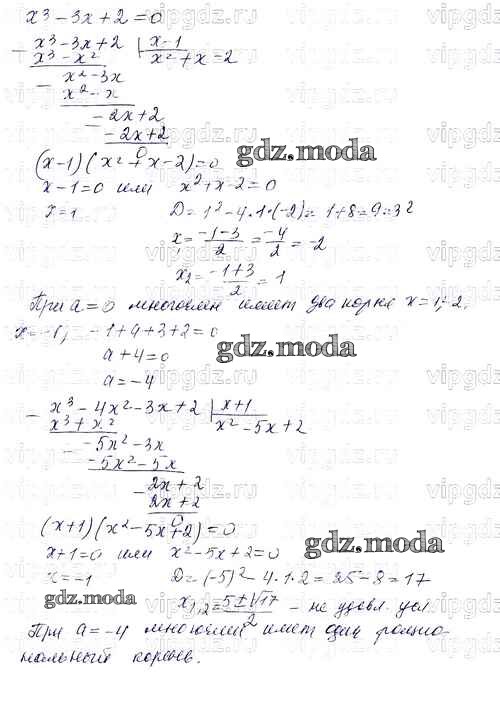 x³-3x+2=0
x³-3x+2 | x-1
x³-x² x²+x=2
x²-3x
x²-x
-2x+2
-2x+2
0
(x-1)(x²+x-2)=0
gdz.moda
x-1=0 или x²+x-2=0
x=1 D=1²-4·1·(-2)=1+8=9=3²
x₁=(-1-3)/2=-4/2=-2
x₂=(-1+3)/2=1
При a=0 многочлен имеет два корня x=1;-2.
x=-1, -1+a+3+2=0
a+4=0
gdz.moda
a=-4
x³-4x²-3x+2 | x+1
x³+x² x²-5x+2
-5x²-3x
-5x²-5x
2x+2
2x+2
0
(x+1)(x²-5x+2)=0
x+1=0 или x²-5x+2=0
gdz.moda
x=-1 D=(-5)²-4·1·2=25-8=17
gdz.moda
x₁,₂=(5±√17)/2 - не удовл. усл.
При a=-4 многочлен имеет один рацио-
нальный корень.
vipgdz.ru